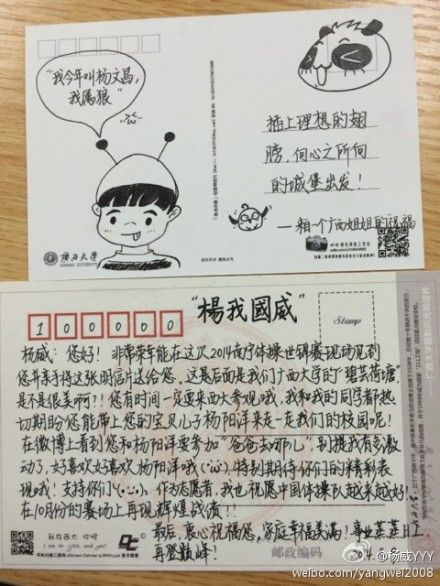 "我今年叫杨文昌,
我属狼"
插上理想的翅
膀,向心之所向
的城堡出发!
广西大学
1 0 0 0 0 0
"楊我國威"
Stamp
杨威:您好! 非常荣幸能在这次2014南宁体操世锦赛现场见到
您并亲手将这张明信片送给您,这是后面是我们广西大学的"碧云荷塘",
是不是很美啊?!您有时间一定要来西大参观哦,我和我的同学都热
切期盼您能带上您的宝贝儿子杨阳洋来走一走我们的校园呢!
在微博上看到您和杨阳洋要参加"爸爸去哪儿",别提我有多激
动了,好喜欢好喜欢杨阳洋哦(˙ω˙),特别期待你们的精彩表
现哦!支持你们(•ω•)。作为志愿者,我也祝愿中国体操队越来越好!
在10月份的赛场上再现辉煌战绩!!
最后,衷心祝福您,家庭幸福美满!事业蒸蒸日上,
再登巅峰!
我在西大 你呢
I am in gxu, and you?
邮政编码
2014.
@杨威YYY
weibo.com/yangwei2008